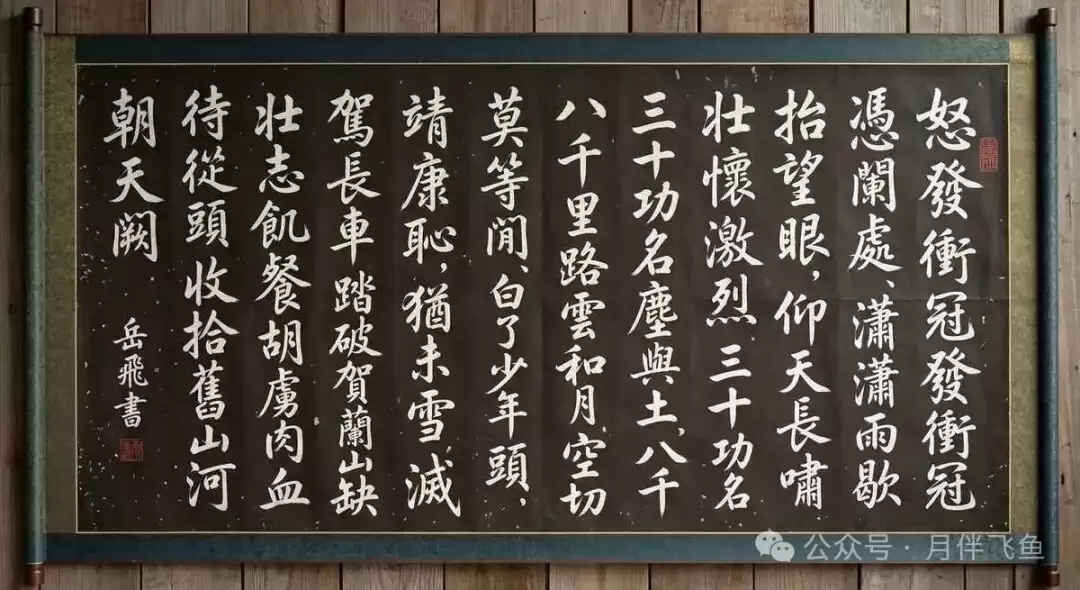 怒發衝冠發衝冠
憑闌處、瀟瀟雨歇
抬望眼,仰天長嘯
壯懷激烈 三十功名
三十功名塵與土、八千
八千里路雲和月、空切
莫等閒、白了少年頭,
靖康恥,猶未雪、滅
駕長車踏破賀蘭山缺
壯志飢餐胡虜肉血
待從頭收拾舊山河
朝天闕
岳飛書
公众号·月伴飞鱼